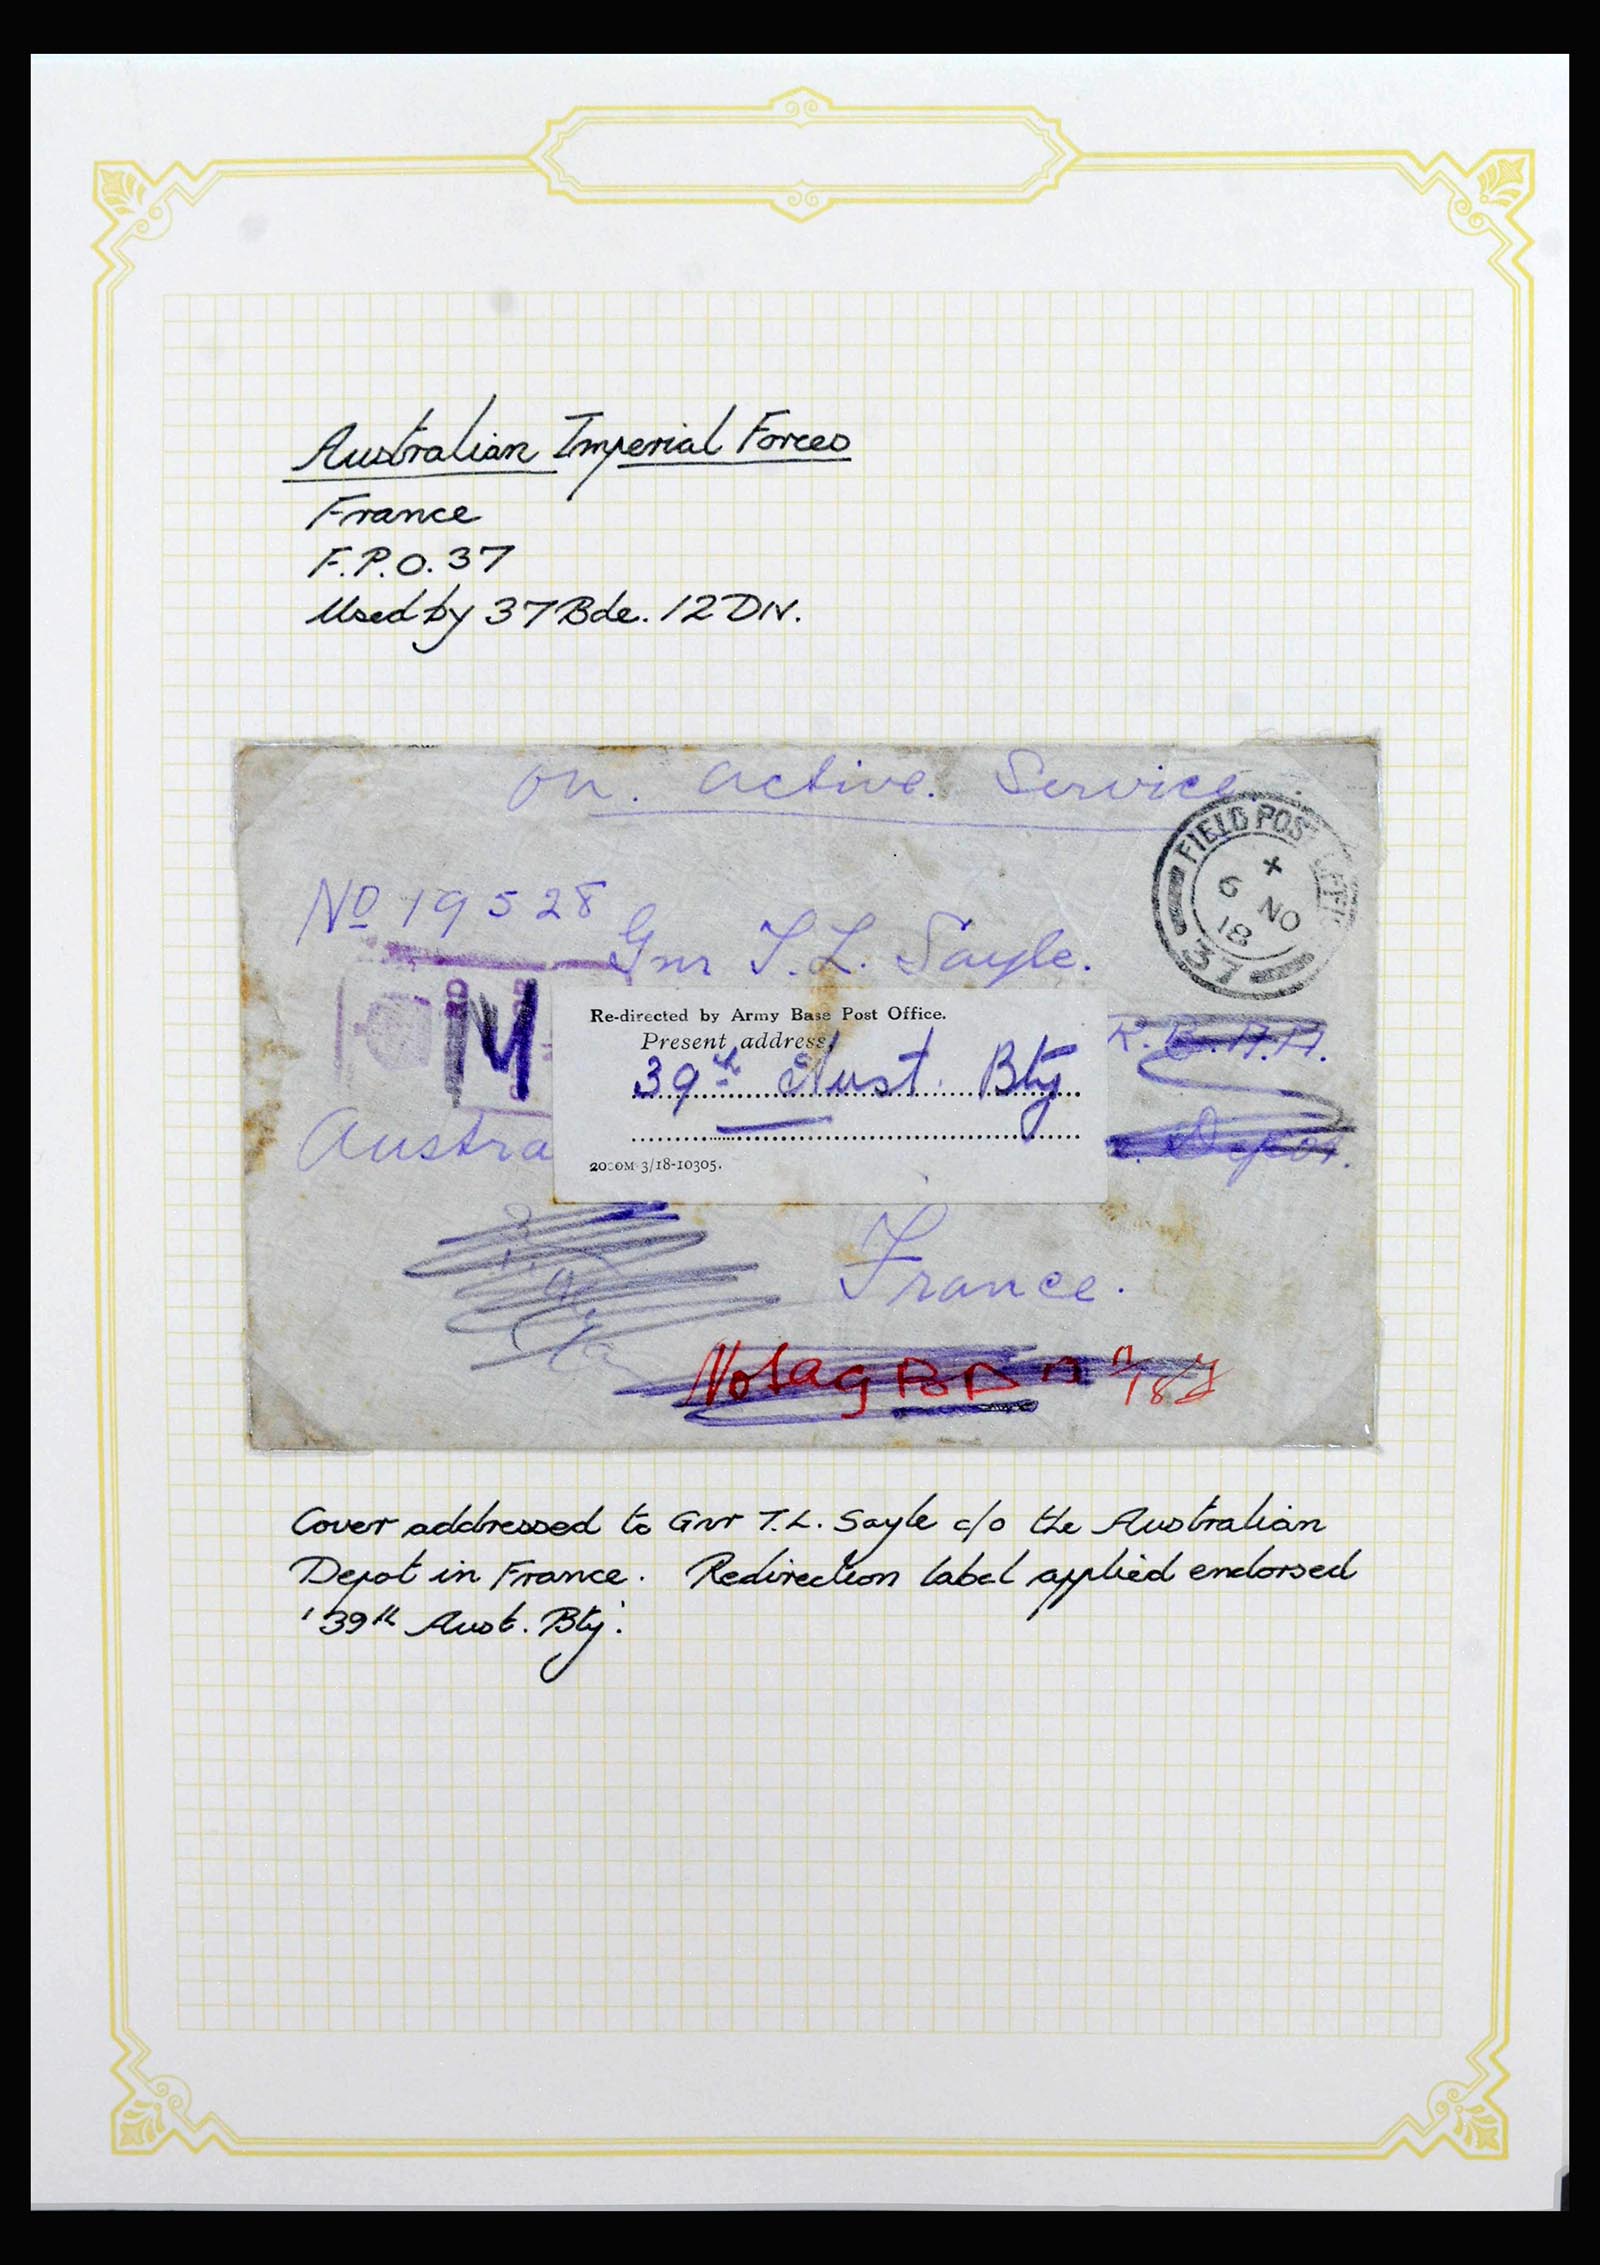 Australian Imperial Forces
France
F.P.O. 37
Used by 37 Bde. 12 DIV.
On. Active. Service
FIELD POST OFFICE
X
6 NO
18
37
No 19528
Gnr T. L. Sayle.
M
Re-directed by Army Base Post Office.
Present address,
39th Aust. Bty
3/18-10305.
Austra
Depot.
France.
Cover addressed to Gnr T.L. Sayle c/o the Australian
Depot in France. Redirection label applied endorsed
'39th Aust. Bty'.